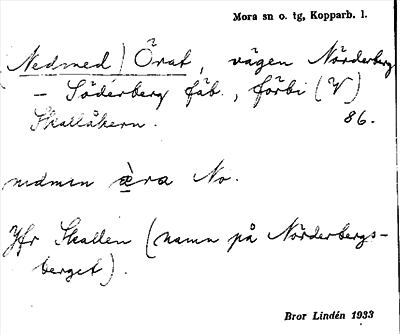 Mora sn o. tg, Kopparb. l.
(Nedmed) Örat, vägen Nörderberg
- Söderberg fäb., förbi (V)
Skallåkern. 86.
nedmen æ̀ra No.
Jfr Skallen (namn på Nörderbergs-
berget).
Bror Lindén 1933